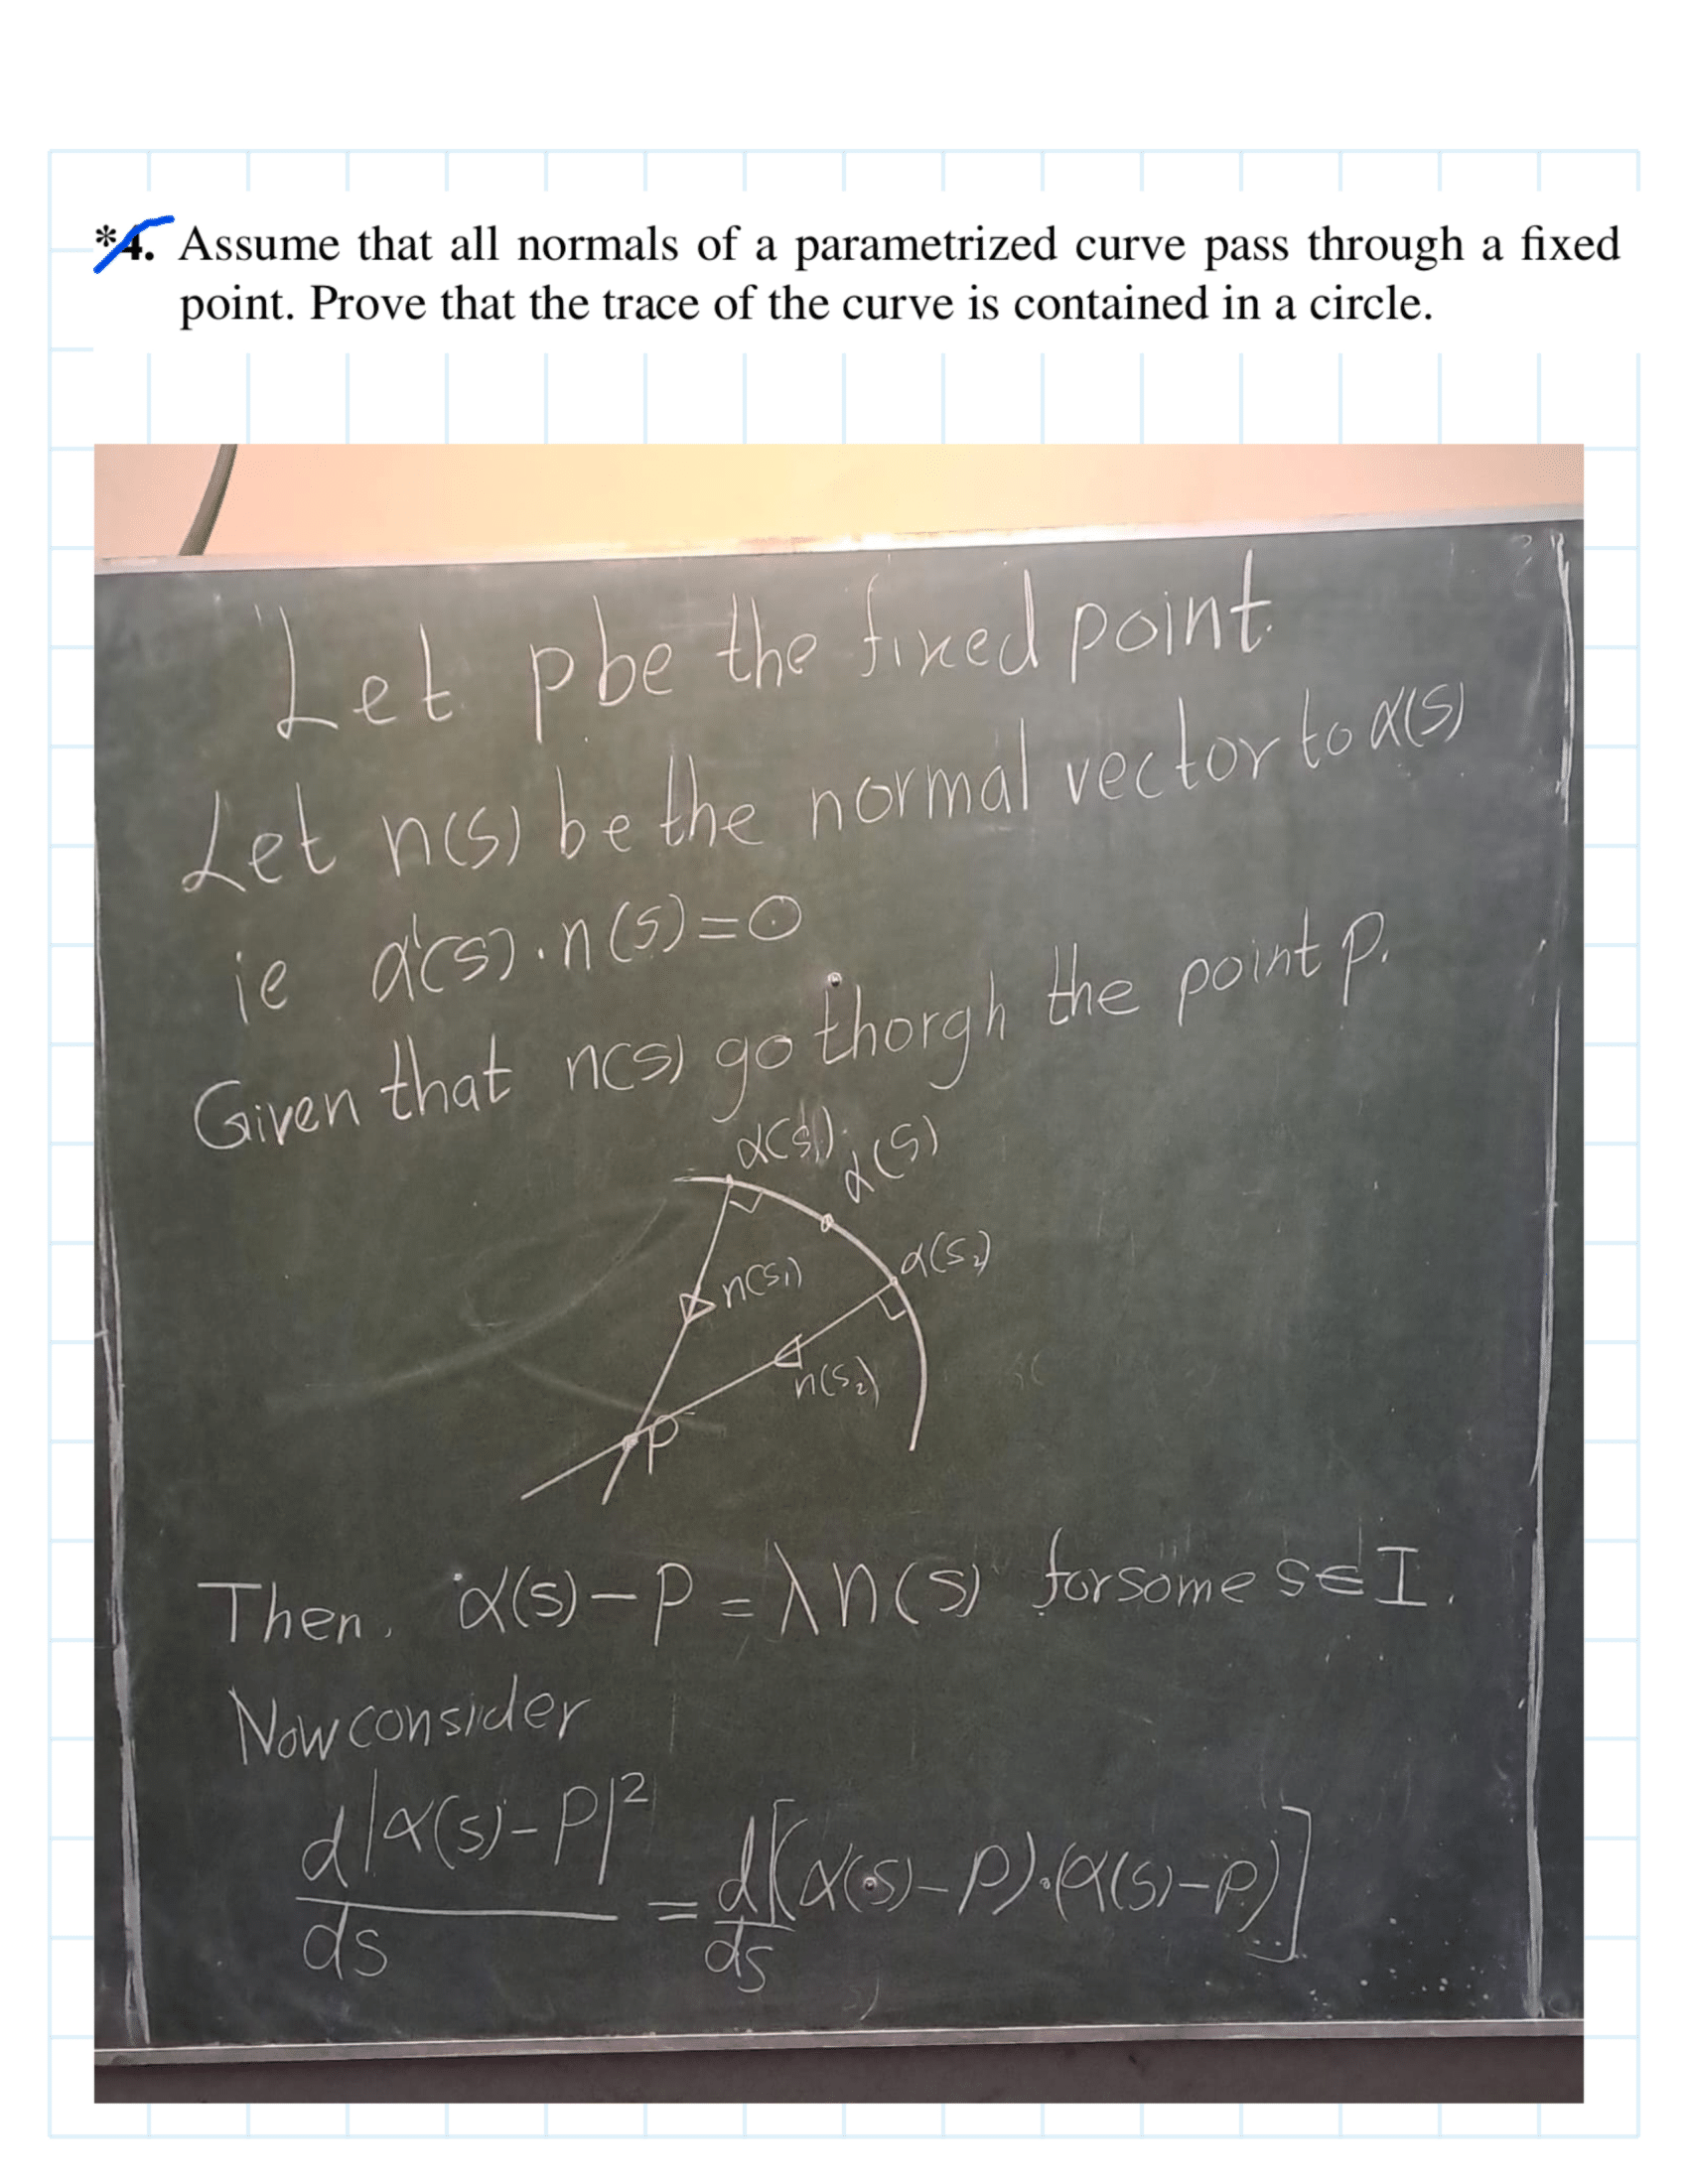 *4. Assume that all normals of a parametrized curve pass through a fixed
point. Prove that the trace of the curve is contained in a circle.
Let p be the fixed point.
Let n(s) be the normal vector to α(s)
ie α'(s)·n(s)=0
Given that n(s) go thorgh the point p.
α(s₁)
α(s)
α(s₂)
n(s₁)
n(s₂)
P
Then, α(s)-p = λn(s) for some s∈I.
Now consider
d|α(s)-p|²/ds = d/ds[(α(s)-p)·(α(s)-p)]